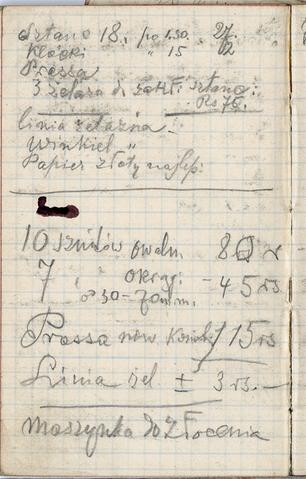 Sztanc 18. po 1.50. 27
Klocki " 15 12
Prassa
3 żelaza d. zakł. sztanc:
Rs 70.
linia żelazna -
Winkiel "
Papier złoty najlep.
10 sznitów owaln. 80 r
7 " okrąg: - 45 rs
30-70 m.m.
Prassa now. 15 rs
Linia żel ± 3 rs. -
Maszynka do złocenia